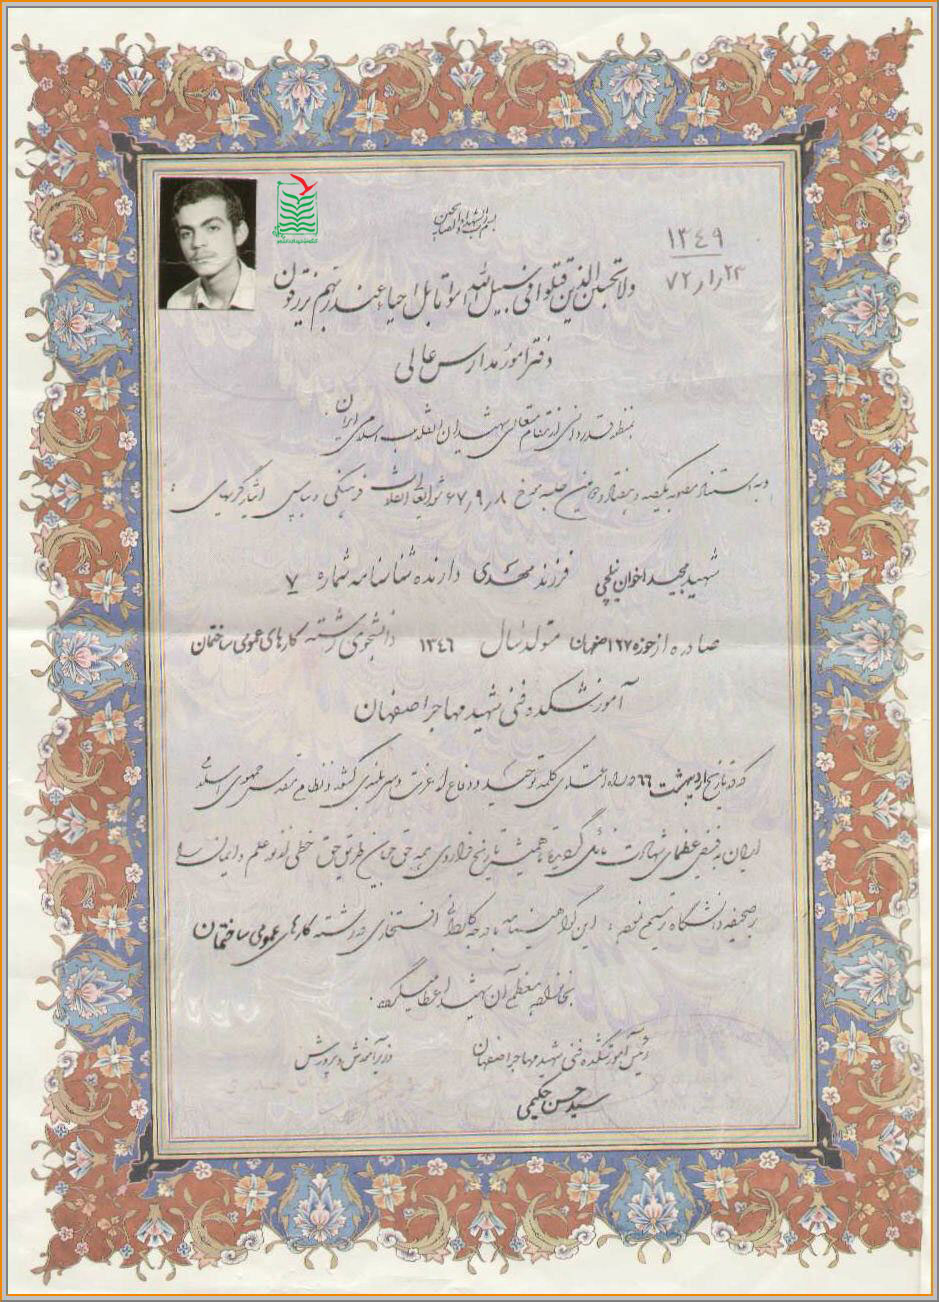 بسم رب الشهداء و الصدیقین
۱۳۴۹
۷۲/۱/۲۳
ولا تحسبن الذین قتلوا فی سبیل الله امواتا بل احیاء عند ربهم یرزقون
دفتر امور مدارس عالی
بمنظور قدردانی از مقام متعالی شهیدان انقلاب اسلامی ایران
و به استناد مصوبه یکصد و هفتاد و مین جلسه مورخ ۶۷/۹/۸ شورایعالی انقلاب فرهنگی و بپاس ایثارگریهای :
شهید مجید اخوان نیلچی فرزند مهدی دارنده شناسنامه شماره ۷
صادره از حوزه ۱۶۷ اصفهان متولد سال ۱۳۴۶ دانشجوی رشته کارهای عمومی ساختمان
آموزشکده فنی شهید مهاجر اصفهان
که در تاریخ اردیبهشت ۶۶ در راه اعتلای کلمه توحید و دفاع از عزت و سربلندی کشور و نظام مقدس جمهوری اسلامی
ایران به فیض عظمای شهادت نائل گردید تا همیشه تاریخ فراروی همه حق جویان طریق حق خطی از نور علم و ایمان را
بر صحیفه دانشگاه ترسیم نماید، این گواهینامه با درجه کاردانی افتخاری در رشته کارهای عمومی ساختمان
بخانواده معظم آن شهید اعطا میگردد.
رئیس آموزشکده فنی شهید مهاجر اصفهان
وزیر آموزش و پرورش
سید حسن حکیمی